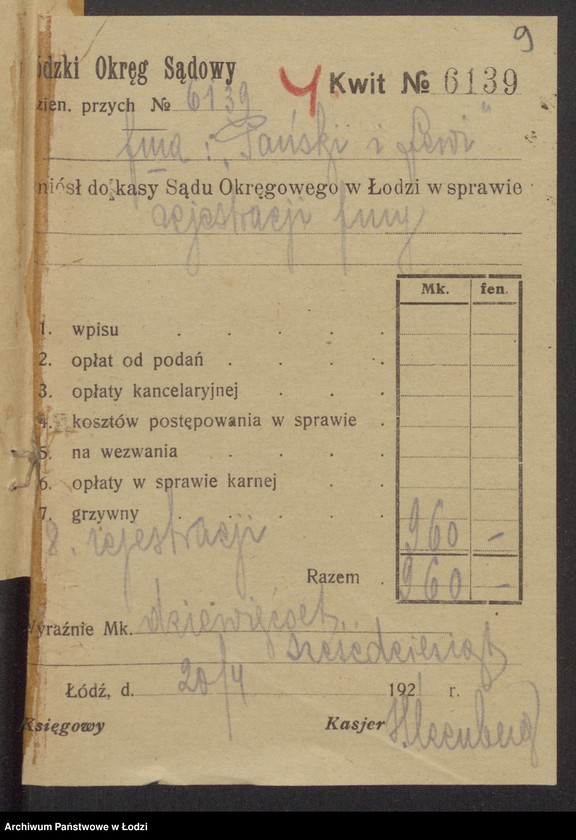 9
ódzki Okręg Sądowy
Kwit № 6139
zien. przych № 6139
fma: "Pański i Lewi"
niósł do kasy Sądu Okręgowego w Łodzi w sprawie
rejestracji firmy
Mk. fen.
1. wpisu
2. opłat od podań
3. opłaty kancelaryjnej
4. kosztów postępowania w sprawie
5. na wezwania
6. opłaty w sprawie karnej
7. grzywny
8. rejestracji 960 –
Razem 960 –
Wyraźnie Mk. dziewięćset
sześćdziesiąt
Łódź, d. 20/4 192 r.
Księgowy Kasjer
Archiwum Państwowe w Łodzi